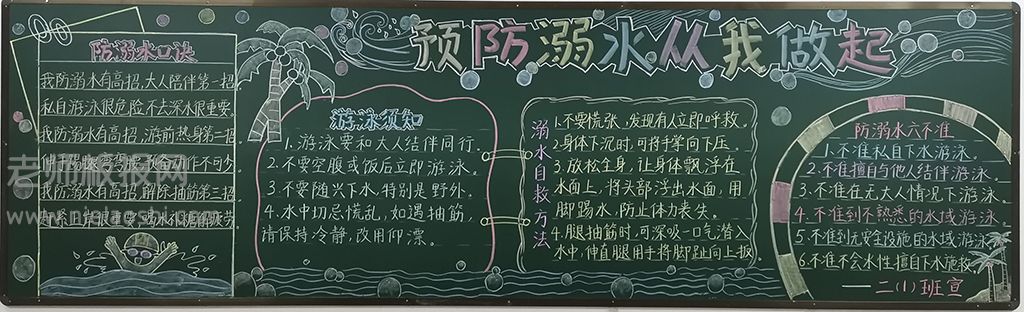 预防溺水从我做起
防溺水口诀
我防溺水有高招,大人陪伴第一招
私自游泳很危险不去深水很重要。
我防溺水有高招,游前热身第二招
我防溺水有高招,解除抽筋第三招
游泳须知
1.游泳要和大人结伴同行。
2.不要空腹或饭后立即游泳。
3.不要随兴下水,特别是野外。
4.水中切忌慌乱,如遇抽筋,
请保持冷静,改用仰漂。
溺水自救方法
1.不要慌张,发现有人立即呼救。
2.身体下沉时,可将手掌向下压。
3.放松全身,让身体飘浮在
水面上,将头部浮出水面,用
脚踢水,防止体力丧失。
4.腿抽筋时,可深吸一口气潜入
水中,伸直腿用手将脚趾向上扳。
防溺水六不准
1.不准私自下水游泳。
2.不准擅自与他人结伴游泳。
3.不准在无大人情况下游泳。
4.不准到不熟悉的水域游泳。
5.不准到无安全设施的水域游泳
6.不准不会水性擅自下水施救。
——二(1)班宣